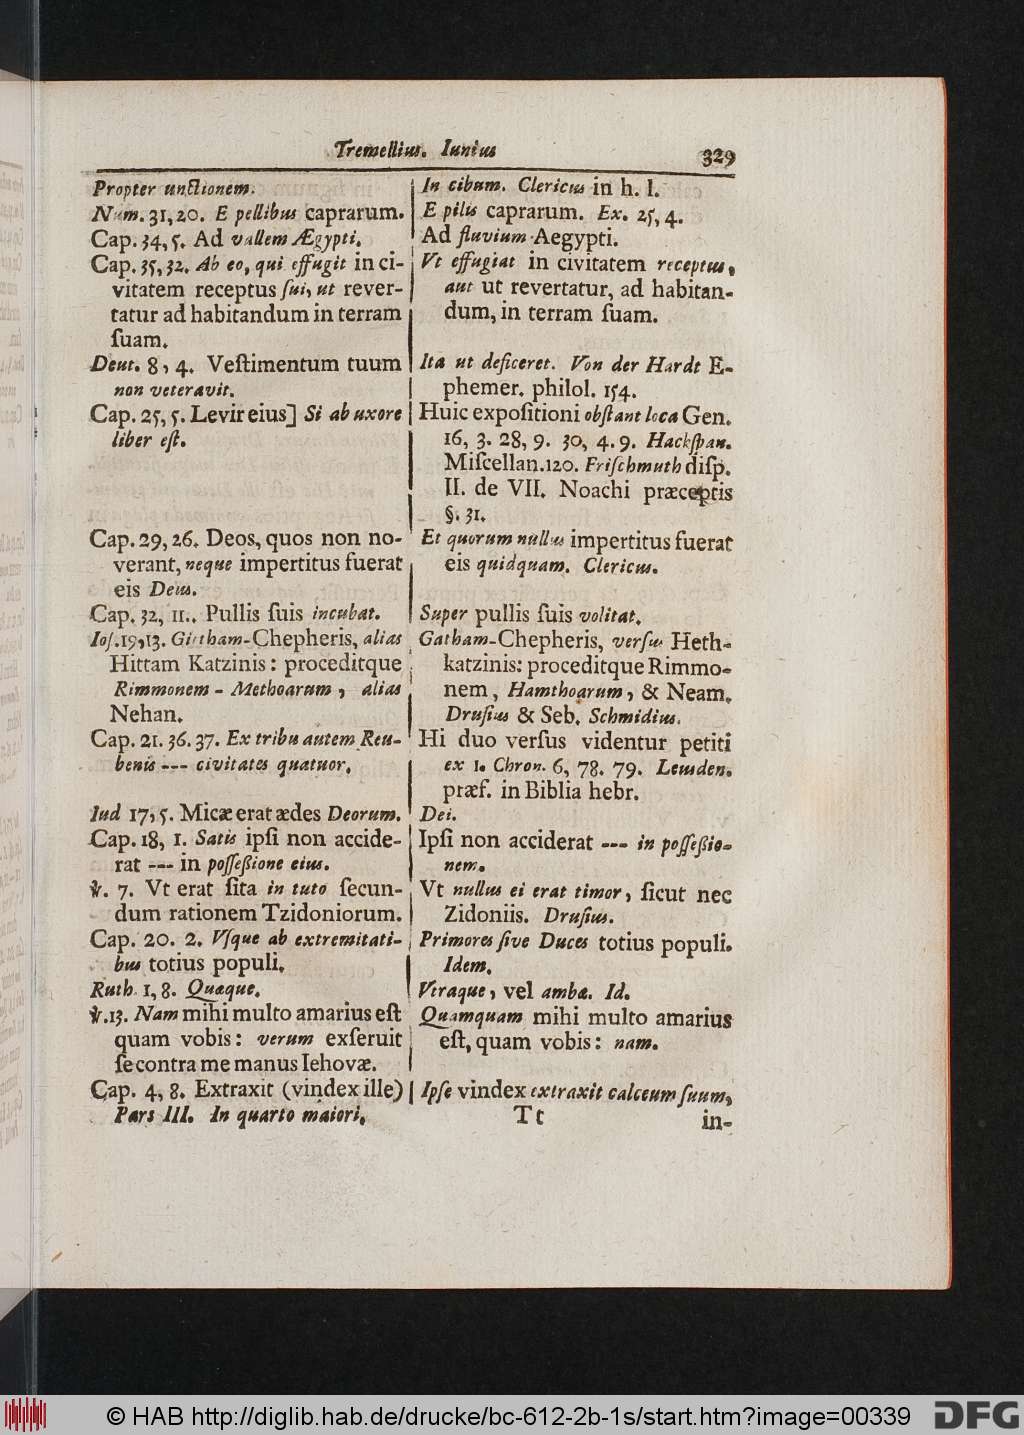 Tremellius. Iunius 329
Propter unctionem.
Num. 31, 20. E pellibus caprarum.
Cap. 34, 5. Ad vallem Ægypti.
Cap. 35, 32. Ab eo, qui effugit in ci-
vitatem receptus ſui, ut rever-
tatur ad habitandum in terram
ſuam.
Deut. 8, 4. Veſtimentum tuum
non veteravit.
Cap. 25, 5. Levir eius] Si ab uxore
liber eſt.
Cap. 29, 26. Deos, quos non no-
verant, neque impertitus fuerat
eis Deus.
Cap. 32, 11. Pullis ſuis incubat.
Ioſ. 19, 13. Gittham-Chepheris, alias
Hittam Katzinis: proceditque
Rimmonem - Methoarum, alias
Nehan.
Cap. 21. 36. 37. Ex tribu autem Reu-
benis --- civitates quatuor.
Iud 17, 5. Micæ erat ædes Deorum.
Cap. 18, 1. Satis ipſi non accide-
rat --- in poſſeßione eius.
℣. 7. Vt erat ſita in tuto ſecun-
dum rationem Tzidoniorum.
Cap. 20. 2. Vſque ab extremitati-
bus totius populi.
Ruth. 1, 8. Quæque.
℣. 13. Nam mihi multo amarius eſt
quam vobis: verum exſeruit
ſe contra me manus Iehovæ.
Cap. 4, 8. Extraxit (vindex ille)
In cibum. Clericus in h. l.
E pilis caprarum. Ex. 25, 4.
Ad fluvium Aegypti.
Vt effugiat in civitatem receptus,
aut ut revertatur, ad habitan-
dum, in terram ſuam.
Ita ut deficeret. Von der Hardt E-
phemer. philol. 154.
Huic expoſitioni obſtant loca Gen.
16, 3. 28, 9. 30, 4. 9. Hackſpan.
Miſcellan. 120. Friſchmuth diſp.
II. de VII. Noachi præceptis
§. 31.
Et quorum nullus impertitus fuerat
eis quidquam. Clericus.
Super pullis ſuis volitat.
Gatham-Chepheris, verſus Heth-
katzinis: proceditque Rimmo-
nem, Hamthoarum, & Neam.
Druſius & Seb. Schmidius.
Hi duo verſus videntur petiti
ex 1. Chron. 6, 78. 79. Leusden.
præf. in Biblia hebr.
Dei.
Ipſi non acciderat --- in poſſeßio-
nem.
Vt nullus ei erat timor, ſicut nec
Zidoniis. Druſius.
Primores ſive Duces totius populi.
Idem.
Vtraque, vel ambæ. Id.
Quamquam mihi multo amarius
eſt, quam vobis: nam.
Ipſe vindex extraxit calceum ſuum,
Pars III. In quarto maiori. Tt in-
© HAB http://diglib.hab.de/drucke/bc-612-2b-1s/start.htm?image=00339 DFG